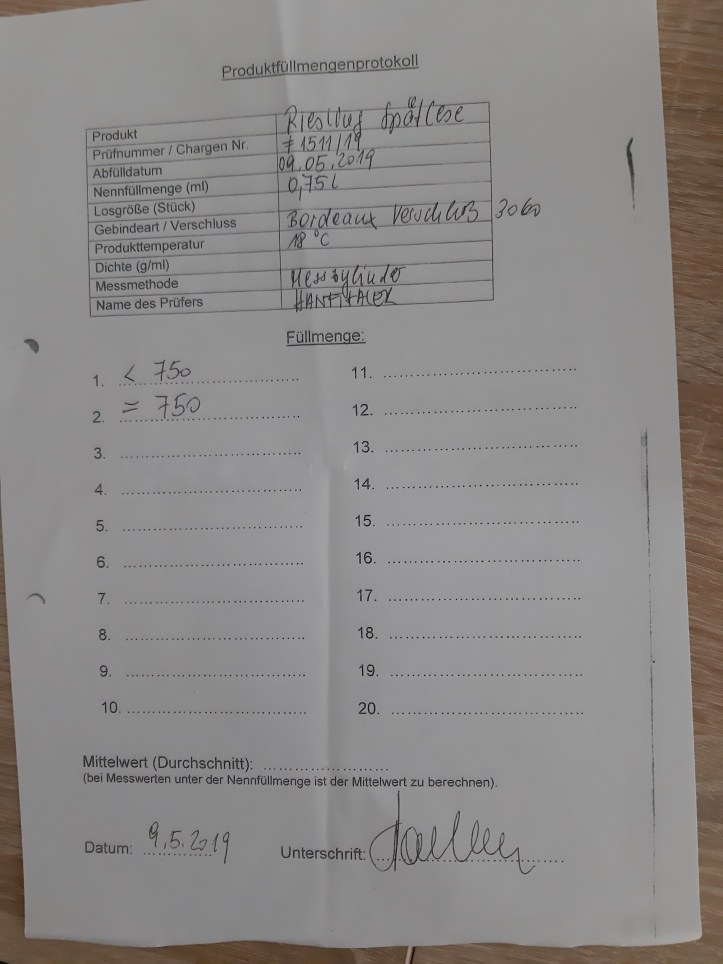 Produktfüllmengenprotokoll
Produkt Riesling Spätlese
Prüfnummer / Chargen Nr. # 1511/19
Abfülldatum 09.05.2019
Nennfüllmenge (ml) 0,75 l
Losgröße (Stück)
Gebindeart / Verschluss Bordeaux Verschluß 3060
Produkttemperatur 18 °C
Dichte (g/ml)
Messmethode Messzylinder
Name des Prüfers
Füllmenge:
1. < 750
2. = 750
3.
4.
5.
6.
7.
8.
9.
10.
11.
12.
13.
14.
15.
16.
17.
18.
19.
20.
Mittelwert (Durchschnitt):
(bei Messwerten unter der Nennfüllmenge ist der Mittelwert zu berechnen).
Datum: 9.5.2019 Unterschrift: